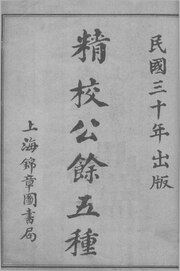 民國三十年出版
精校公餘五種
上海錦章圖書局